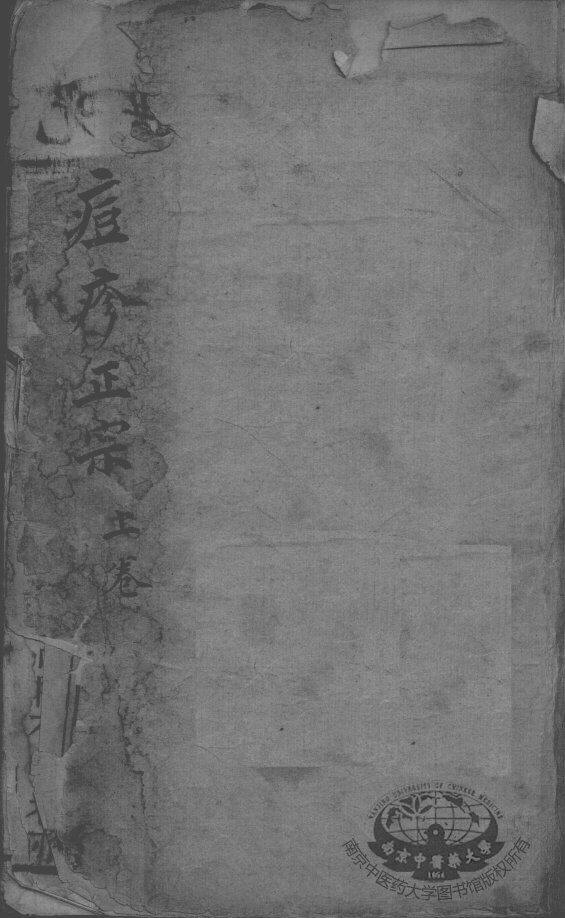 痘疹正宗 上卷
NANJING UNIVERSITY OF CHINESE MEDICINE
南京中醫藥大學
1954
南京中医药大学图书馆版权所有